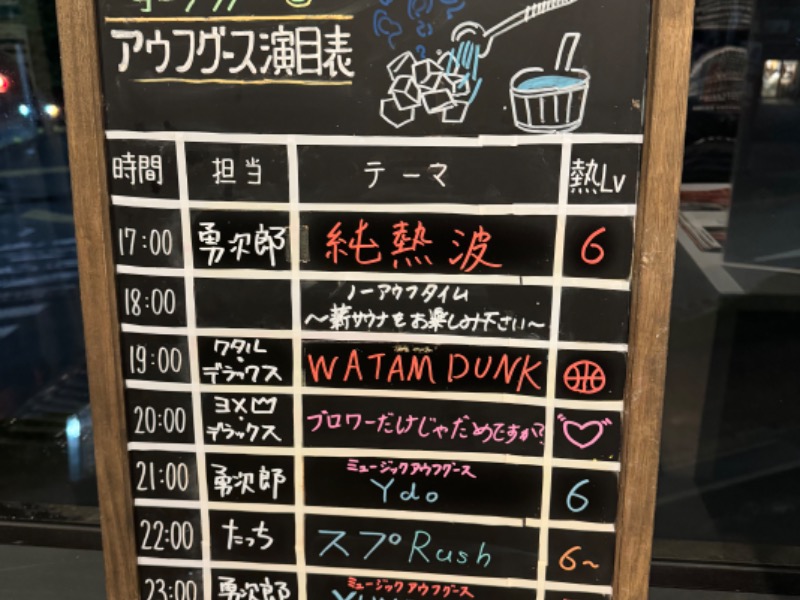 アウフグース演目表
時間 担当 テーマ 熱Lv
17:00 勇次郎 純熱波 6
18:00 ノーアウフタイム
〜薪サウナをお楽しみ下さい〜
19:00 ワタル・デラックス WATAM DUNK
20:00 ヨメ・デラックス ブロワーだけじゃだめですか?
21:00 勇次郎 ミュージックアウフグース
Ydo 6
22:00 たっち スプRush 6~
23:00 勇次郎 ミュージックアウフグース